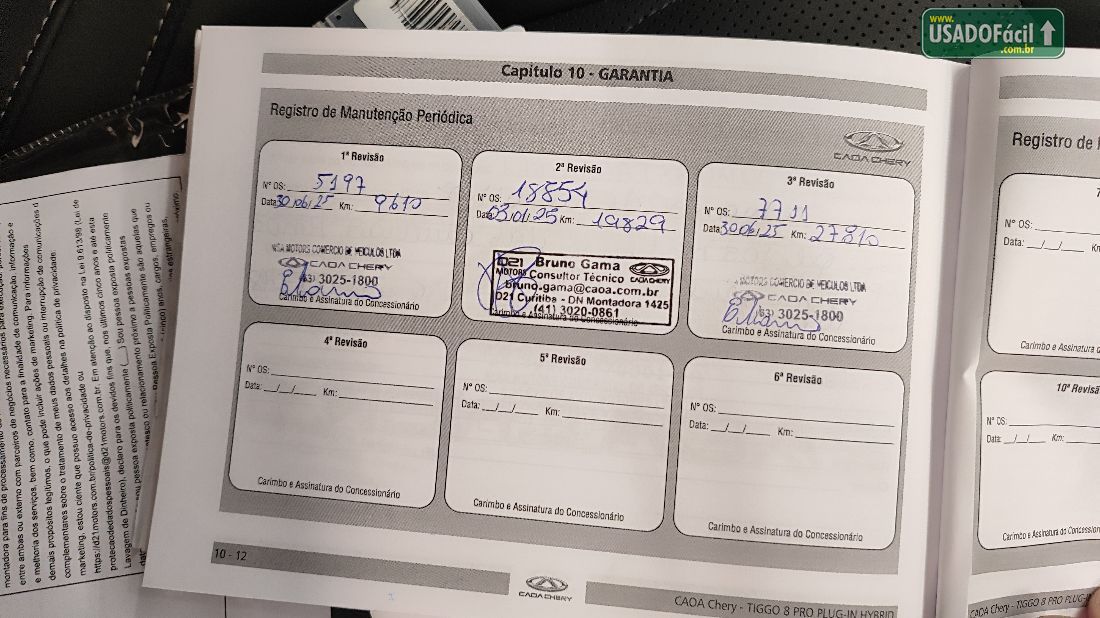 www.
USADOFácil
.com.br
Capítulo 10 - GARANTIA
Registro de Manutenção Periódica
CAOA CHERY
1ª Revisão
Nº OS: 5197
Data: 30/06/25 Km: 9610
MOTORS COMERCIO DE VEICULOS LTDA
CAOA CHERY
(63) 3025-1800
Carimbo e Assinatura do Concessionário
2ª Revisão
Nº OS: 18854
Data: 03/01/25 Km: 19829
D21 Bruno Gama
MOTORS Consultor Técnico CAOA CHERY
bruno.gama@caoa.com.br
D21 Curitiba - DN Montadora 1425
(41) 3020-0861
Carimbo e Assinatura do Concessionário
3ª Revisão
Nº OS: 7711
Data: 30/06/25 Km: 27810
MOTORS COMERCIO DE VEICULOS LTDA
CAOA CHERY
(63) 3025-1800
Carimbo e Assinatura do Concessionário
4ª Revisão
Nº OS:
Data: __/__/__ Km:
Carimbo e Assinatura do Concessionário
5ª Revisão
Nº OS:
Data: __/__/__ Km:
Carimbo e Assinatura do Concessionário
6ª Revisão
Nº OS:
Data: __/__/__ Km:
Carimbo e Assinatura do Concessionário
10 - 12
CAOA CHERY
CAOA Chery - TIGGO 8 PRO PLUG-IN HYBRID
Registro de
Nº OS:
Data: __/__/__
Carimbo e Assinatura
10ª Revisã
Nº OS:
Data: __/__/__ Km:
Carimbo e Assinatura do Concession
CAOA Chery - TIGGO 8 PRO PLUG-IN
montadora para fins de processamento
entre ambas ou externo com parceiros de negócios necessários para
e melhoria dos serviços, bem como, contato para a finalidade de comunicação, informação e
demais propósitos legítimos, o que pode incluir ações de marketing. Para informações
complementares sobre o tratamento de meus dados pessoais ou interrupção de comunicações d
marketing, estou ciente que possuo acesso aos detalhes na política de privacidade:
https://d21motors.com.br/politica-de-privacidade ou
protecaodedadospessoais@d21motors.com.br. Em atenção ao disposto na Lei 9.613/98 (Lei de
Lavagem de Dinheiro), declaro para os devidos fins que, nos últimos cinco anos e até esta